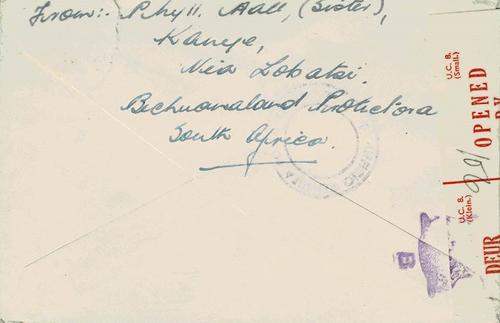 From:- Phyll. Aall, (Sister),
Kanye,
Via Lobatsi.
Bechuanaland Protect'ora
South Africa.
U.C. B.
(Small.)
OPENED
BY
U.C. B.
(Klein.)
DEUR